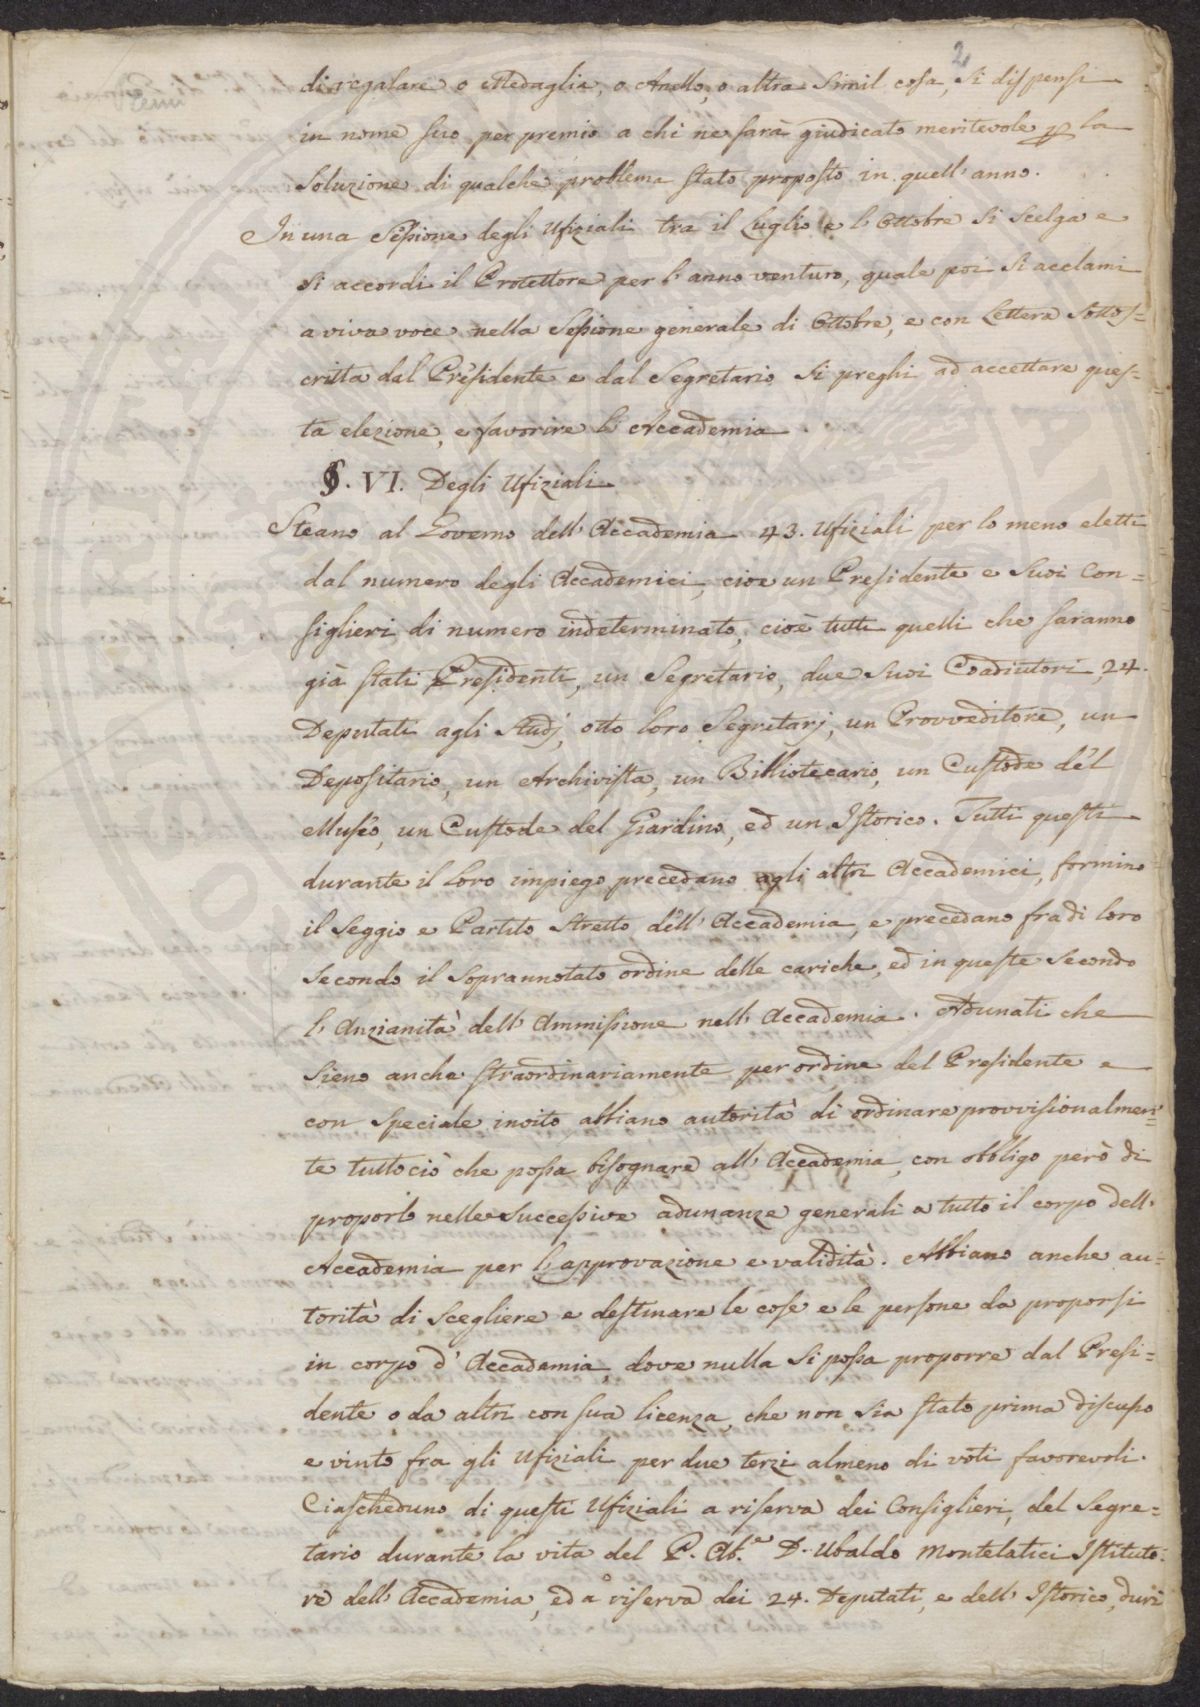 2
di regalare o Medaglia, o Anello, o altra simil cosa, si dispensi
in nome suo per premio a chi ne sarà giudicato meritevole p la
soluzione di qualche problema stato proposto in quell' anno.
In una Sessione degli Ufiziali tra il Luglio e l' Ottobre si scelga e
si accordi il Protettore per l' anno venturo, quale poi si acclami
a viva voce nella Sessione generale di Ottobre, e con Lettera sottos=
critta dal Presidente e dal Segretario si preghi ad accettare ques=
ta elezione, e favorire l' Accademia.
§. VI. Degli Ufiziali
Steano al Governo dell' Accademia 43. Ufiziali per lo meno eletti
dal numero degli Accademici, cioè un Presidente e suoi Con=
siglieri di numero indeterminato, cioè tutti quelli che saranno
già stati Presidenti, un Segretario, due suoi Coadiutori, 24.
Deputati agli Studj, otto loro Segretarj, un Provveditore, un
Depositario, un Archivista, un Bibliotecario, un Custode del
Museo, un Custode del Giardino, ed un Istorico. Tutti questi
durante il loro impiego precedano agli altri Accademici, formino
il Seggio e Partito Stretto dell' Accademia, e precedano fra di loro
secondo il soprannotato ordine delle cariche, ed in queste secondo
l' Anzianità dell' Ammissione nell' Accademia. Adunati che
sieno anche straordinariamente per ordine del Presidente e
con speciale invito abbiano autorità di ordinare provvisionalmen=
te tuttociò che possa bisognare all' Accademia, con obbligo però di
proporlo nelle successive adunanze generali a tutto il corpo dell'
Accademia per l' approvazione e validità. Abbiano anche au=
torità di scegliere e destinare le cose e le persone da proporsi
in corpo d' Accademia, dove nulla si possa proporre dal Presi=
dente o da altri con sua licenza, che non sia stato prima discusso
e vinto fra gli Ufiziali per due terzi almeno di voti favorevoli.
Ciascheduno di questi Ufiziali a riserva dei Consiglieri, del Segre=
tario durante la vita del P. Ab.e D. Ubaldo Montelatici Istituto=
re dell' Accademia, ed a riserva dei 24. Deputati, e dell' Istorico, duri